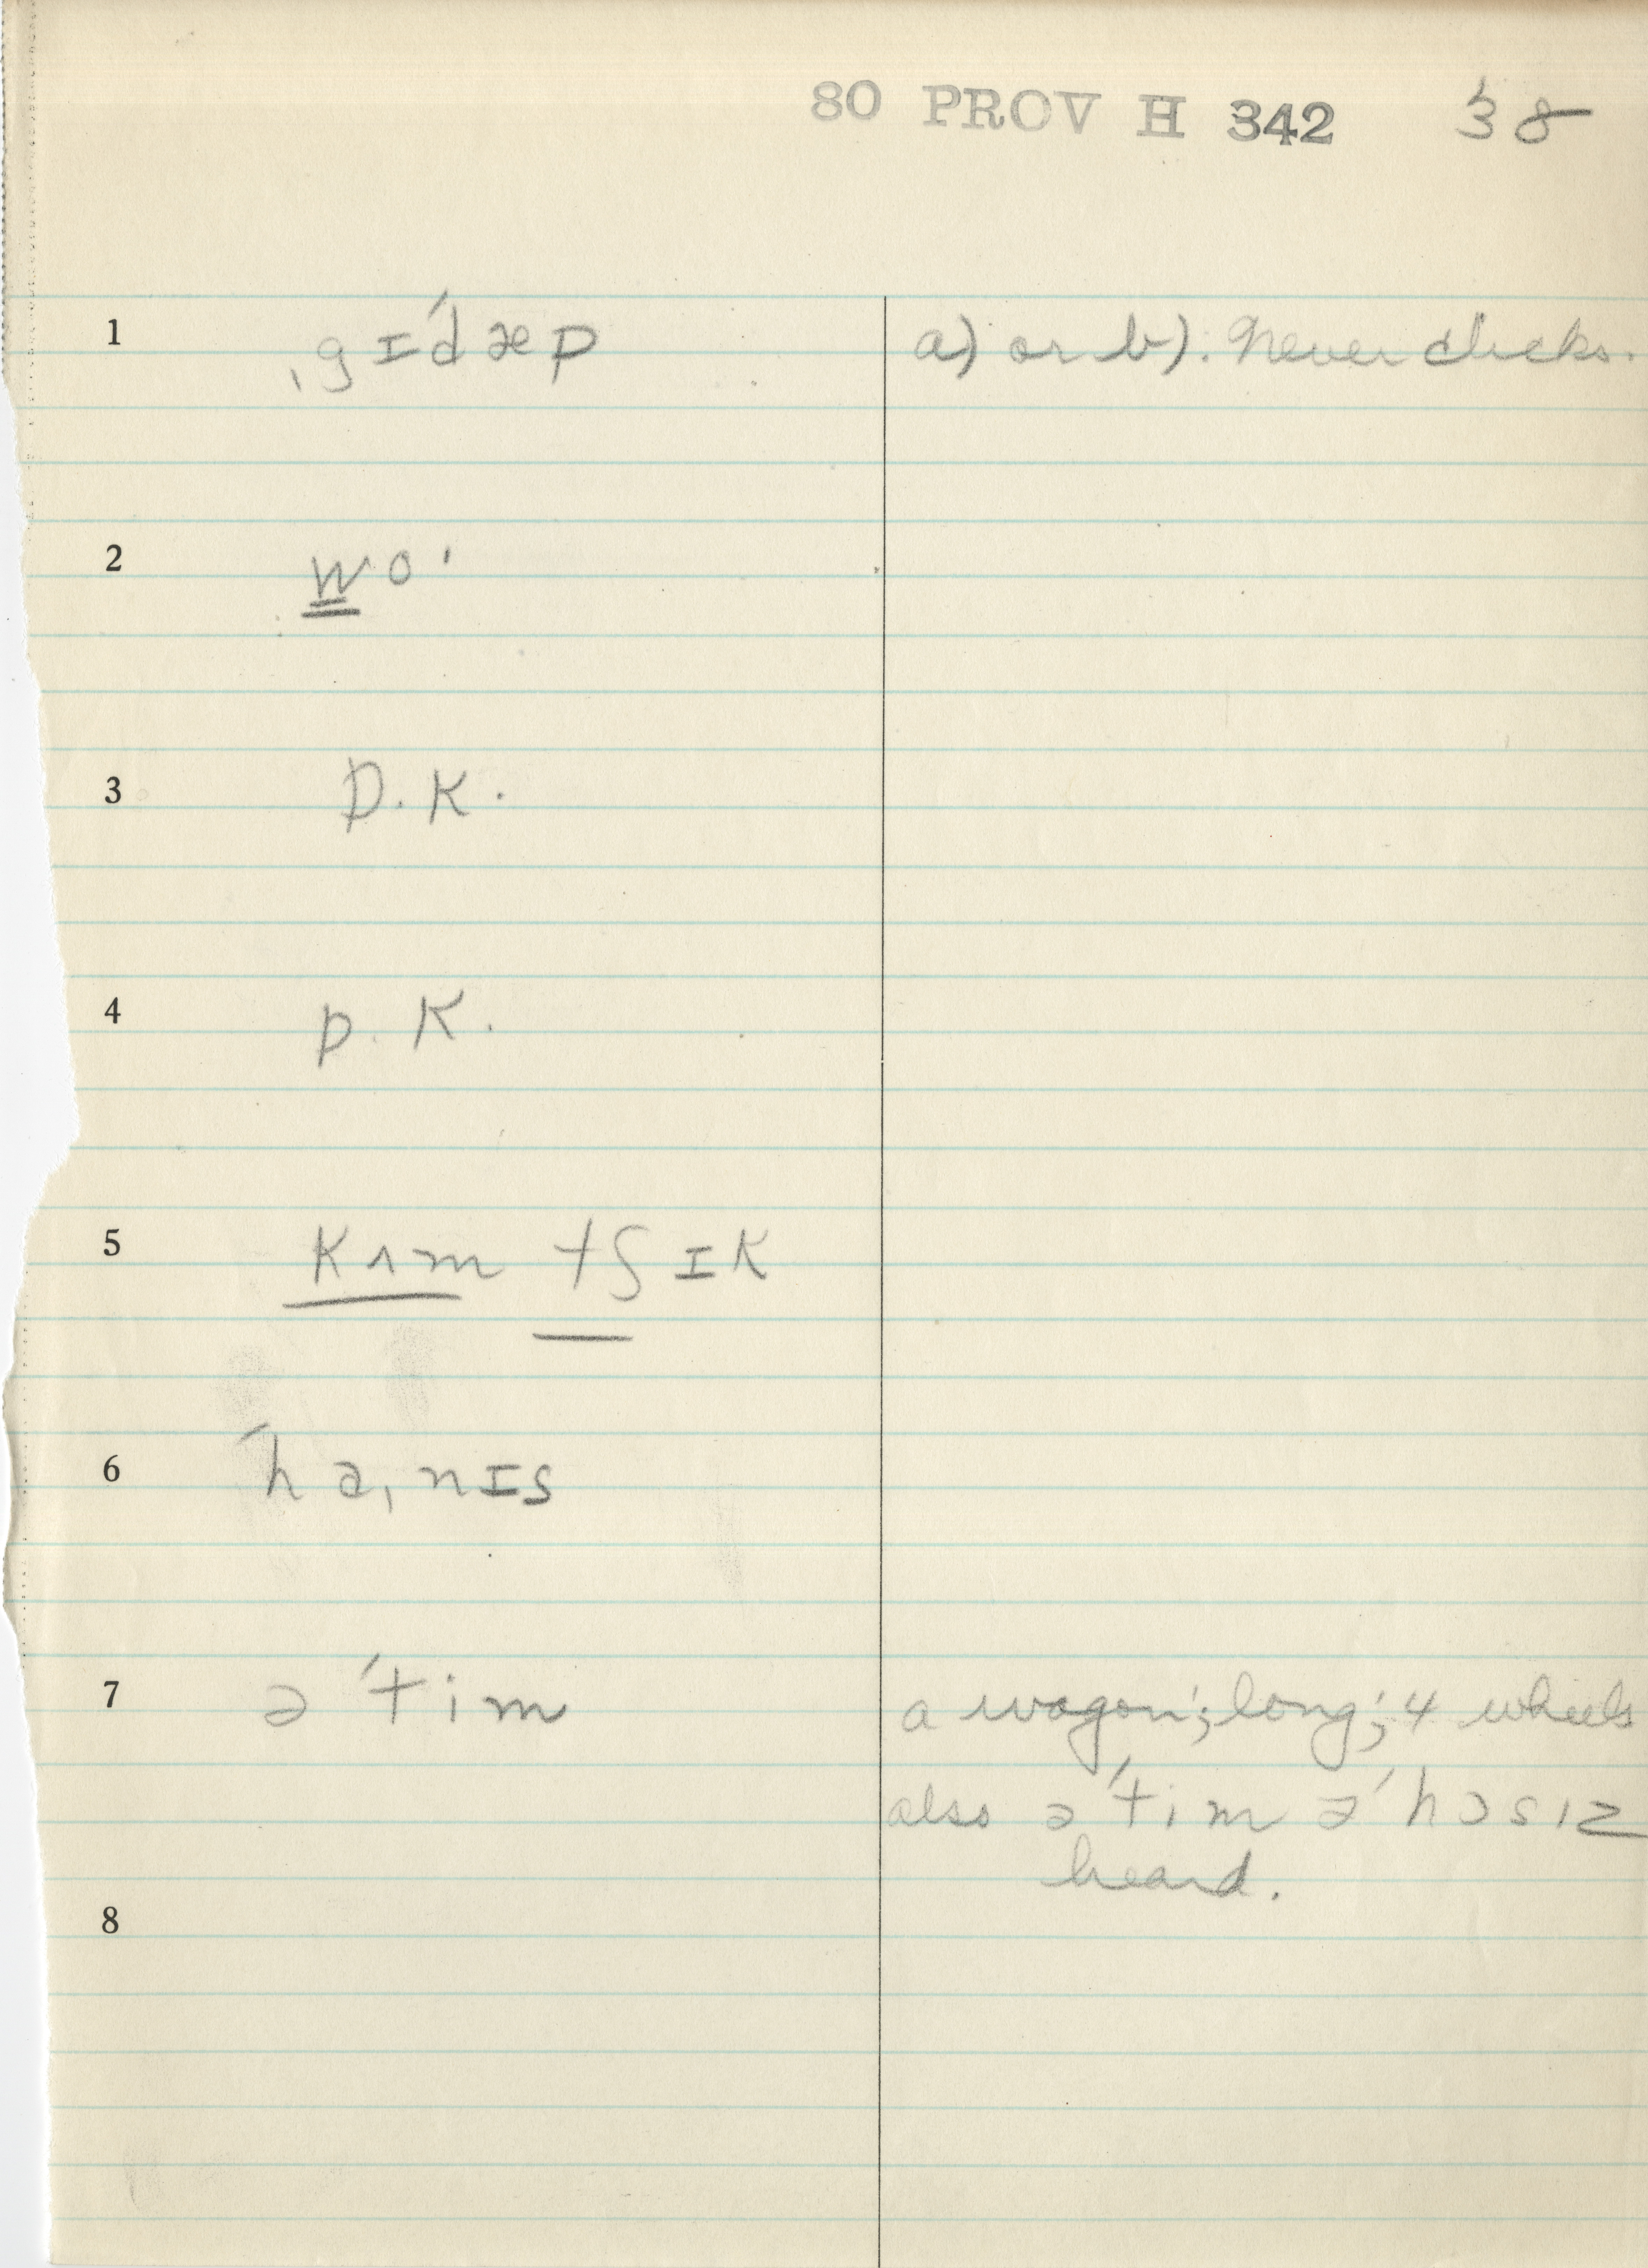 80 PROV H 342 38
1 ˌgɪˈdæp a) or b). Never clicks.
2 wo'
3 D.K.
4 D.K.
5 Kʌm tʃɪk
6 ˈhaˌnɪs
7 əˈtim a wagon'; long'; 4 wheels
also əˈtim əˈhɔsız
heard.
8